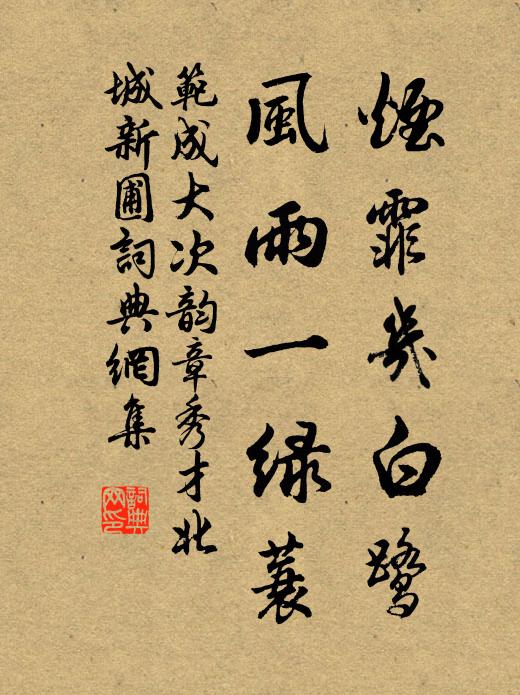 煙霏幾白鷺
風雨一綠蓑
範成大次韵章秀才北
城新圃詞典網集
詞典
网印